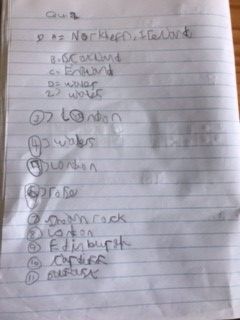 Quiz
A= Northern, Ireland
B. Scotland
C. England
D= wales
2) wales
3) London
4) wales
5) London
6) rose
7) Shamrock
8) London
9) Edinburgh
10) Cardiff
11)